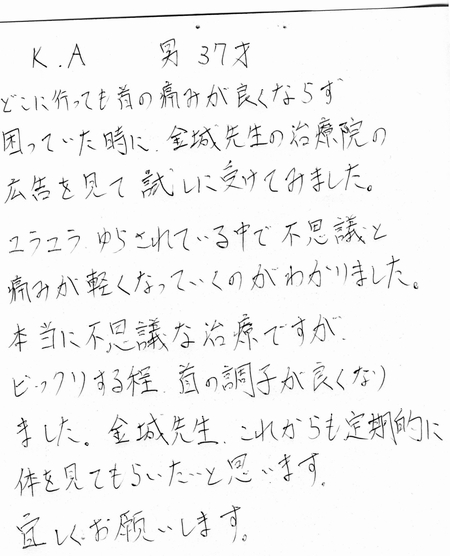 K.A 男 37才
どこに行っても首の痛みが良くならず
困っていた時に、金城先生の治療院の
広告を見て試しに受けてみました。
ユラユラゆらされている中で不思議と
痛みが軽くなっていくのがわかりました。
本当に不思議な治療ですが、
ビックリする程、首の調子が良くなり
ました。金城先生、これからも定期的に
体を見てもらいたいと思います。
宜しくお願いします。